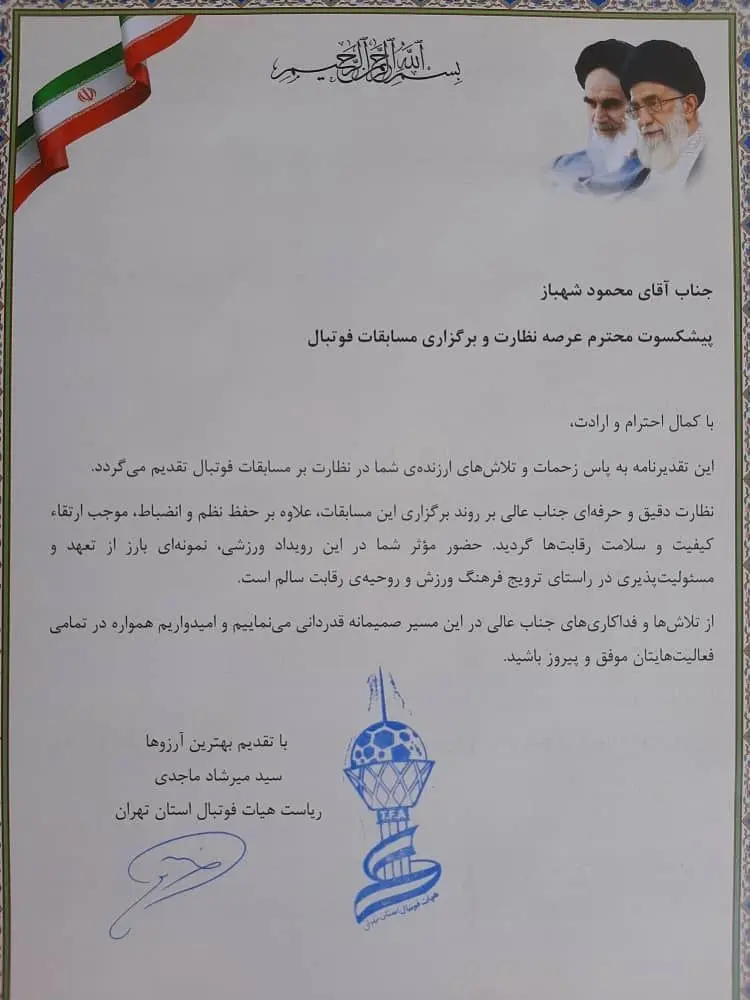 بسم الله الرحمن الرحیم
جناب آقای محمود شهباز
پیشکسوت محترم عرصه نظارت و برگزاری مسابقات فوتبال
با کمال احترام و ارادت،
این تقدیرنامه به پاس زحمات و تلاش‌های ارزنده‌ی شما در نظارت بر مسابقات فوتبال تقدیم می‌گردد.
نظارت دقیق و حرفه‌ای جناب عالی بر روند برگزاری این مسابقات، علاوه بر حفظ نظم و انضباط، موجب ارتقاء
کیفیت و سلامت رقابت‌ها گردید. حضور مؤثر شما در این رویداد ورزشی، نمونه‌ای بارز از تعهد و
مسئولیت‌پذیری در راستای ترویج فرهنگ ورزش و روحیه‌ی رقابت سالم است.
از تلاش‌ها و فداکاری‌های جناب عالی در این مسیر صمیمانه قدردانی می‌نماییم و امیدواریم همواره در تمامی
فعالیت‌هایتان موفق و پیروز باشید.
با تقدیم بهترین آرزوها
سید میرشاد ماجدی
ریاست هیات فوتبال استان تهران
T.F.A
هیات فوتبال استان تهران